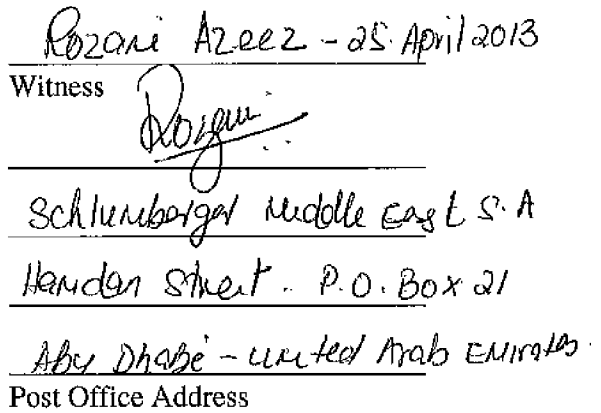 Rozani Azeez - 25 April 2013
Witness
Rozani
Schlumberger Middle East S.A
Hamdan Street. P.O. Box 21
Abu Dhabi - United Arab Emirates.
Post Office Address